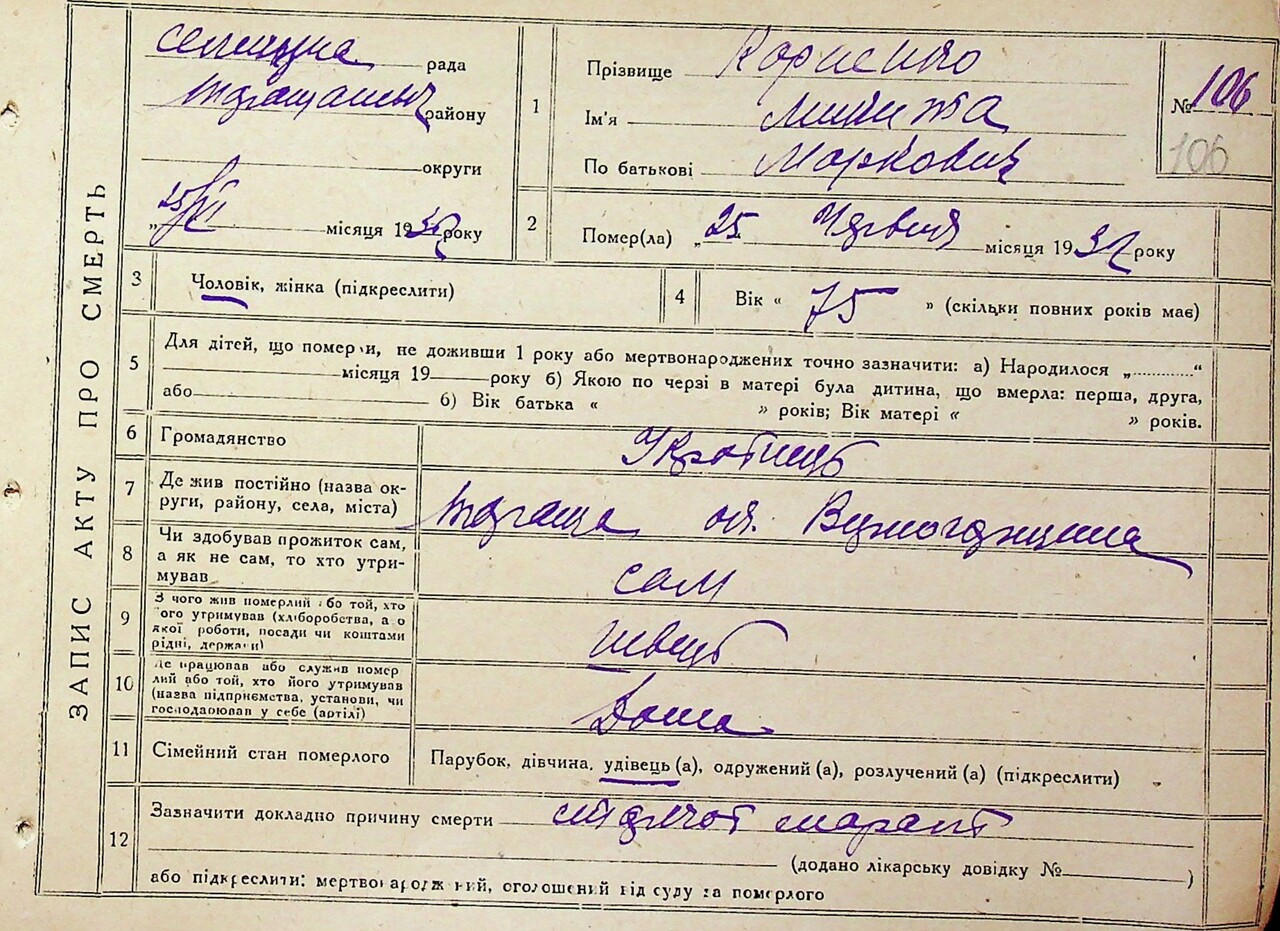 ЗАПИС АКТУ ПРО СМЕРТЬ
рада
району
округи
місяця 19 32 року
1
Прізвище
Ім'я Микита
По батькові Маркович
№ 106
106
2 Помер(ла) „25 Червня місяця 19 32 року
3 Чоловік, жінка (підкреслити)
4 Вік « 75 » (скільки повних років має)
5 Для дітей, що померли, не доживши 1 року або мертвонароджених точно зазначити: а) Народилося „ “
місяця 19 року б) Якою по черзі в матері була дитина, що вмерла: перша, друга,
або б) Вік батька « » років; Вік матері « » років.
6 Громадянство Українець
7 Де жив постійно (назва ок-
руги, району, села, міста)
8 Чи здобував прожиток сам,
а як не сам, то хто утри-
мував
сам
9 З чого жив померлий або той, хто
його утримував (хліборобства, а о
якої роботи, посади чи коштами
рідні, держави)
швець
10 Де працював або служив помер
лий або той, хто його утримував
(назва підприємства, установи, чи
господарював у себе (артілі)
Дома
11 Сімейний стан померлого Парубок, дівчина, удівець (а), одружений (а), розлучений (а) (підкреслити)
12 Зазначити докладно причину смерти
(додано лікарську довідку № )
або підкреслити: мертвонароджений, оголошений від суду за померлого